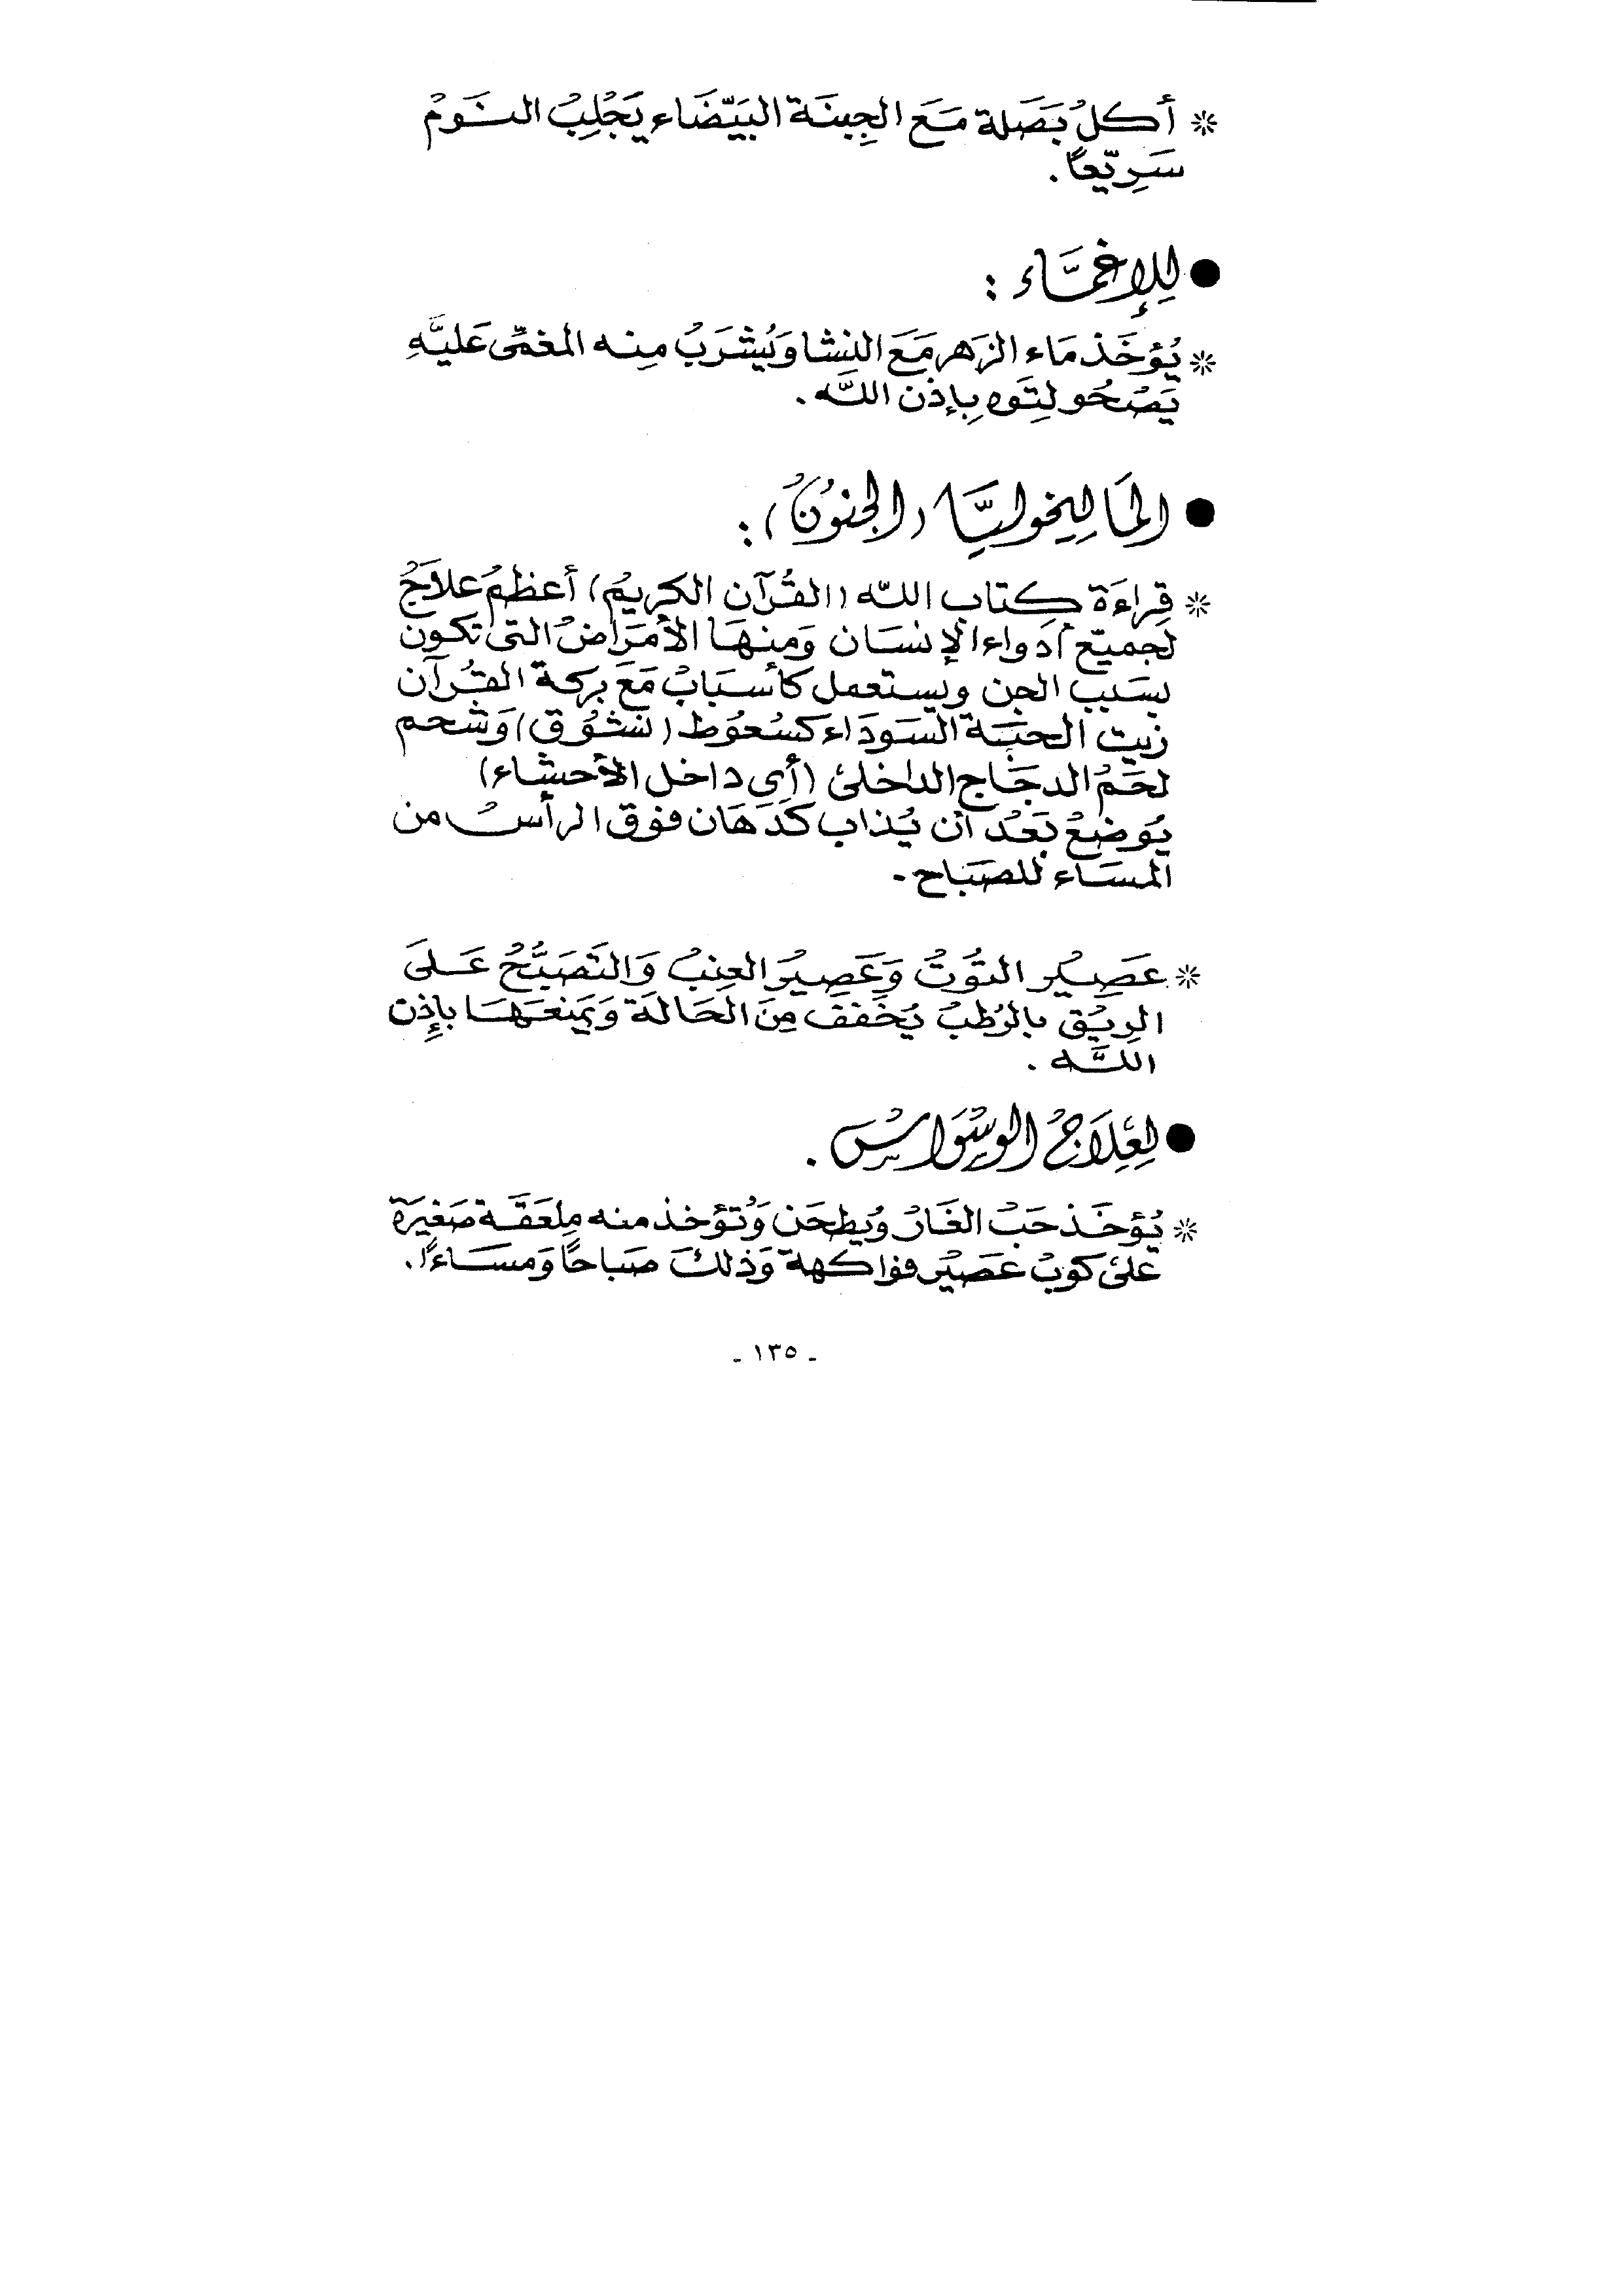 * أكلُ بَصَلة مَعَ الجِبنَة البَيّضَاء يَجْلِبُ النَّومْ
سَرِيّعاً.
● لِلإغمَّاء :
* يُؤخَذ مَاء الزهر مَعَ النشا وَيُشرَبُ مِنه المغمّى عَليَّهِ
يَصْحُو لِتَوه بِإذن اللَّه.
● المَاليِخوليَّا (الجنوُنْ) :
* قِراءَة كِتاب الله (القُرآن الكريمْ) أعظمُ علاَجُ
لجميّع أدواء الإنسَان وَمنهَا الأمرَاضُ التى تكون
بسَبب الجن ويستعمل كأسبَابْ مَعَ بركة القرُآن
زيت الحبَة السَودَاء كسُعوُط (نشوُق) وَشحم
لحَمْ الدجَاج الداخلىْ (أى داخل الأحشاء)
يوُضعْ بَعْد أن يُذاب كَدَهَان فوق الرأسْ من
المسَاء للصبَاح .
* عَصِيْر التوُتْ وَعَصِيرْ العِنبْ وَالتَصَبَّحْ عَلىَ
الرِيْق بالرُطبْ يُخَفف مِنَ الحَالَة وَيَمنعَهَا بِإِذن
اللَّه .
● لِعِلَاجْ الوسْوَاسْ .
* يُؤخَذ حَبْ الغَارْ وَيُطحَن وَتُؤخذ منه مِلعَقَة صَغيرَة
علىْ كوبْ عَصيْر فواكهة وَذلكَ صَباحاً وَمسَاءاً.
- ١٣٥ -